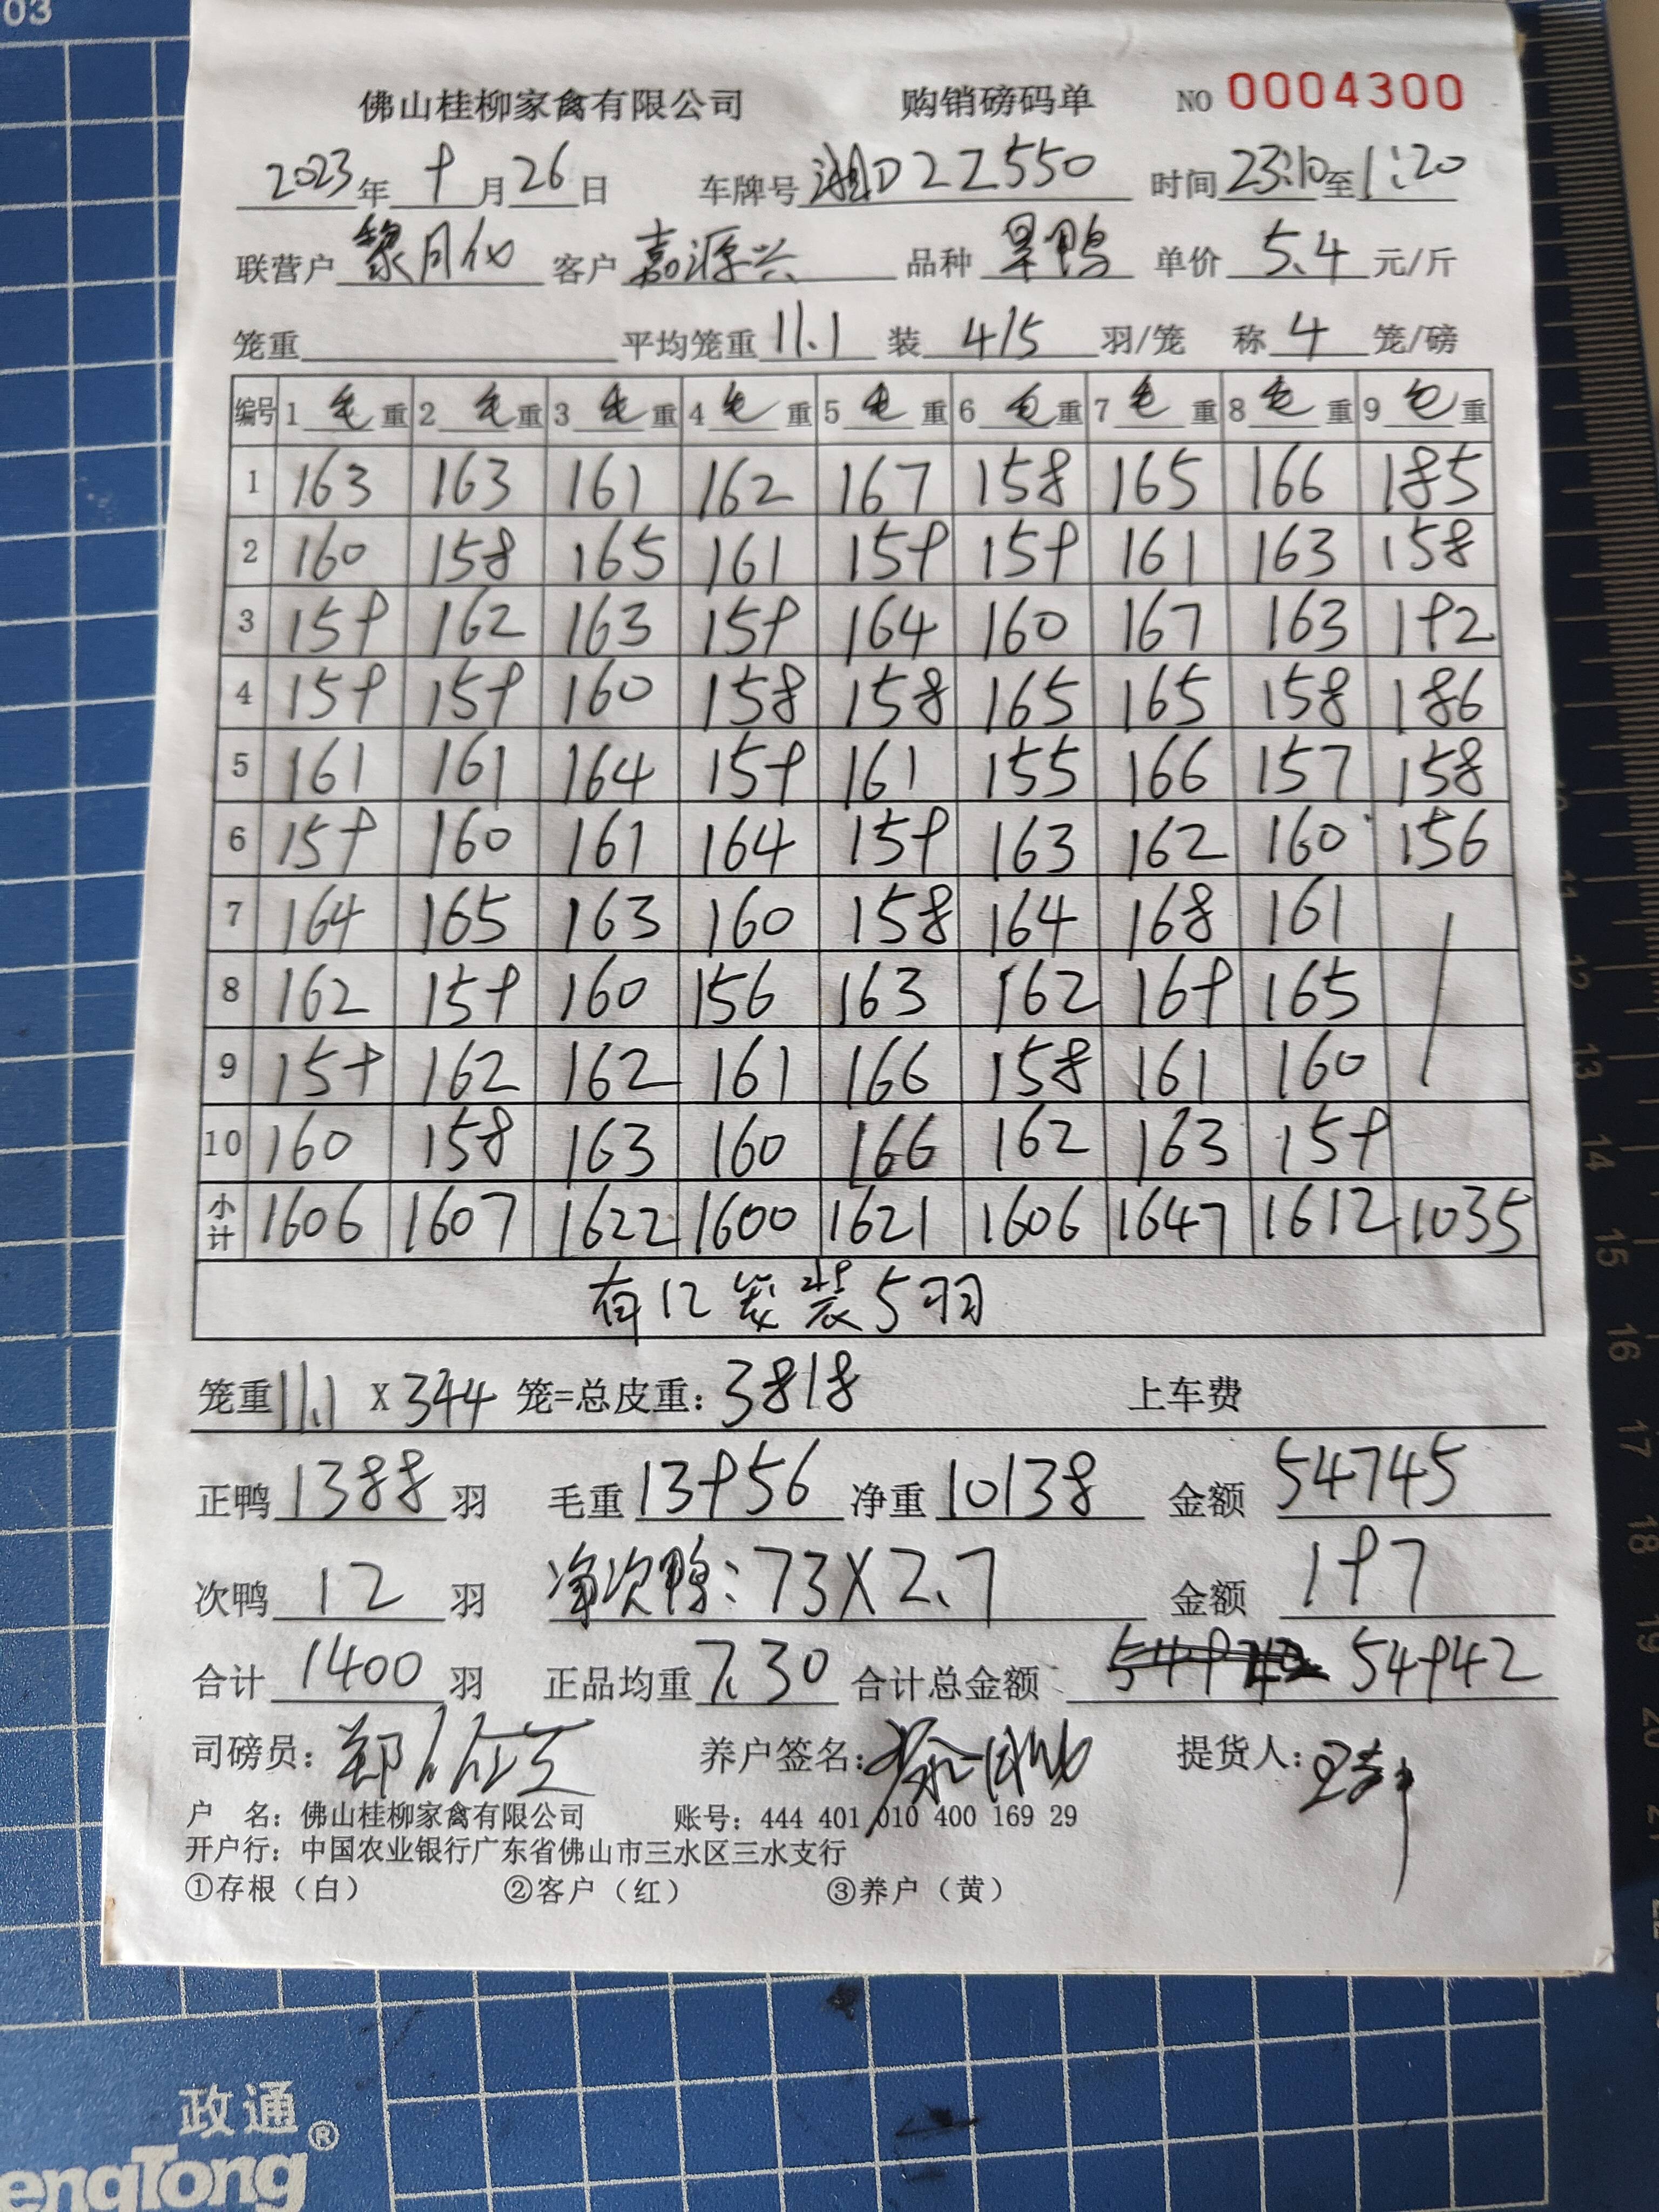 03
佛山桂柳家禽有限公司 购销磅码单 NO 0004300
2023年 9月26日 车牌号 湘D2Z550 时间 23:10至1:20
联营户 黎月仪 客户 嘉源兴 品种 旱鸭 单价 5.4 元/斤
笼重 平均笼重 11.1 装 4/5 羽/笼 称 4 笼/磅
编号 1 毛重 2 毛重 3 毛重 4 毛重 5 毛重 6 毛重 7 毛重 8 毛重 9 毛重
1 163 163 161 162 167 158 165 166 185
2 160 158 165 161 159 159 161 163 158
3 159 162 163 159 164 160 167 163 192
4 159 159 160 158 158 165 165 158 186
5 161 161 164 159 161 155 166 157 158
6 159 160 161 164 159 163 162 160 156
7 164 165 163 160 158 164 168 161
8 162 159 160 156 163 162 169 165
9 159 162 162 161 166 158 161 160
10 160 158 163 160 166 162 163 159
小计 1606 1607 1622 1600 1621 1606 1647 1612 1035
有12笼装5羽
笼重 11.1 X 344 笼=总皮重: 3818 上车费
正鸭 1388 羽 毛重 13956 净重 10138 金额 54745
次鸭 12 羽 净次鸭: 73X2.7 金额 197
合计 1400 羽 正品均重 7.30 合计总金额 54942
司磅员: 养户签名: 提货人:
户 名: 佛山桂柳家禽有限公司 账号: 444 401 010 400 169 29
开户行: 中国农业银行广东省佛山市三水区三水支行
①存根（白） ②客户（红） ③养户（黄）
10
11
12
13
14
15
16
17
18
19
20
21
22
政通®
engTong